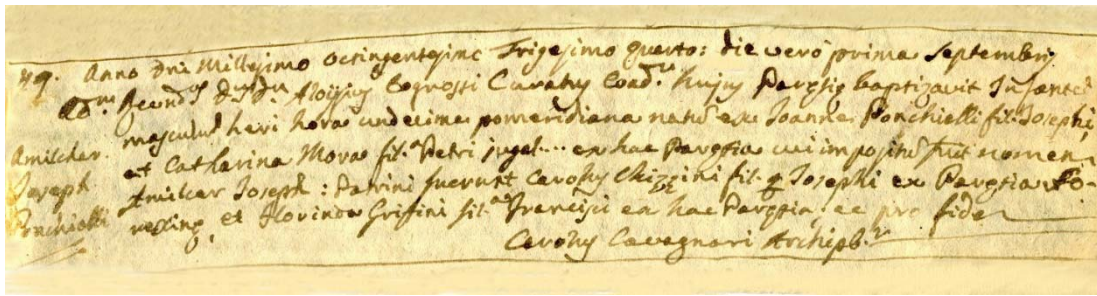 49. Anno Dni Millesimo octingentesimo Trigesimo quarto: die vero prima Septembris
Adm. Reverendus Aloijsius Cugnasti Curatus Coad.r hujus Paræsiæ baptizavit Infantem
masculum heri hora undecima pomeridiana natum ex Joanne Ponchielli fil. Josephi,
et Catharina Mora fil.a Petri jugal... ex hac Paræsia cui impositum fuit nomen
Amilcar Joseph: Patrini fuerunt Carolus Chizzini fil. q. Josephi ex Paræsia
et Florinda Grifini fil.a Francisci ex hac Paræsia, ec pro fide
Carolus Cavagnari Archipb.r
Amilchar
Joseph
Ponchielli